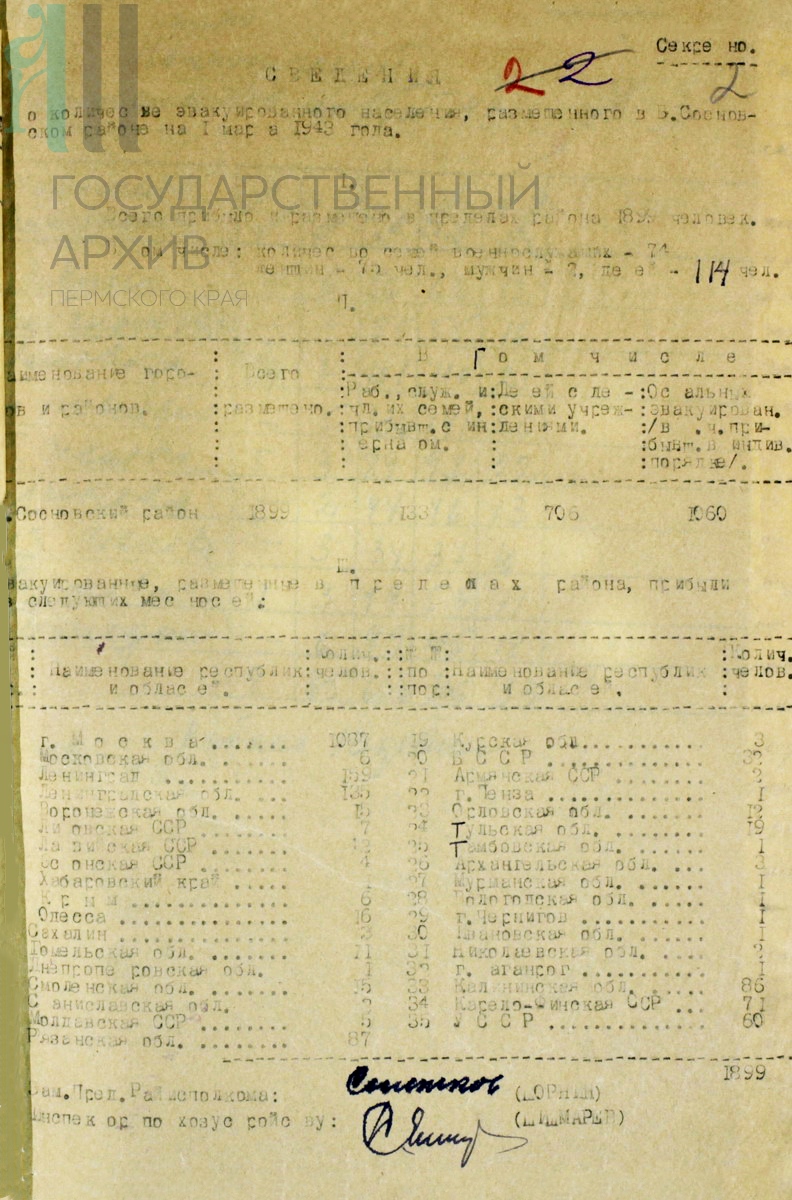 Секре но.
2 2
2
СВЕДЕНИЯ
о количес ве эвакуированного населения, размещенного в Б.Соснов-
ском районе на I мар а 1943 года.
I.
ГОСУДАРСТВЕННЫЙ
АРХИВ
ПЕРМСКОГО КРАЯ
Всего прибыло и размещено в пределах района 1899 человек.
ом числе: количес во семей военнослужащих - 74
женщин - 75 чел., мужчин - 2, де ей - 114 чел.
П.
аименование горо- : Всего : В Том числе
ов и районов. :размещено.:
:Раб.,служ. и:Де ей с де -:Ос альных
:чл. их семей,:скими учреж-:эвакуирован.
:прибывш.с ин:дениями. :/в .ч.при-
: ерна ом. : :бывш.в индив.
:порядке/.
.Сосновский район 1899 133 706 1060
Ш.
вакуированные, размещенные в пределах района, прибыли
следующих мес нос ей:
: Наименование республик:Колич.::№ №:Наименование республик :Колич.
: и облас ей. :челов.::по : и облас ей. :челов.
::пор:
г. Москва....... 1087 19 Курская обл........... 3
Московская обл. ...... 6 20 БССР ........... 32
Ленинград ........ 159 21 Армянская ССР ........ 2
Ленинградская обл. ... 135 22 г.Пенза ............ I
Воронежская обл. ..... 15 23 Орловская обл. ....... 12
Ли овская ССР ...... 7 24 Тульская обл. ....... 19
Ла вийская ССР ...... 12 25 Тамбовская обл. ...... 1
Эс онская ССР ....... 4 26 Архангельская обл. ... 3
Хабаровский край ..... 1 27 Мурманская обл. ...... I
Крым ........... 6 28 Вологодская обл. ..... I
Одесса ............ 16 29 г.Чернигов ......... I
Сахалин ........... 3 30 Ивановская обл. ..... I
Гомельская обл. ..... 11 31 Николаевская обл. .... 2
Днепропе ровская обл. 1 32 г. аганрог ......... I
Смоленская обл. ..... 15 33 Калининская обл. .... 86
С аниславская обл. 2 34 Карело-Финская ССР ... 71
Молдавская ССР ...... 5 35 УССР ............. 60
Рязанская обл. ....... 87
1899
Зам.Пред.Райисполкома: (ГОРНИЙ)
Инспек ор по хозус ройс ву: (ШИШМАРЕВ)